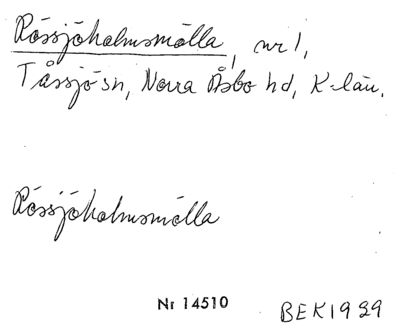 Rössjöholmsmölla, nr 1,
Tåssjö sn, Norra Åsbo hd, K-län.
Rössjöholmsmölla
Nr 14510
BEK 1929